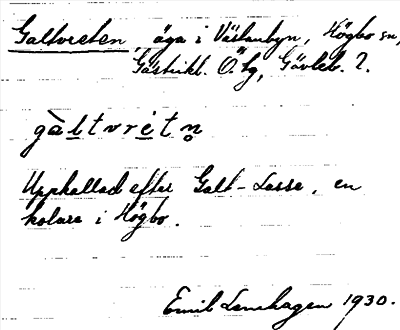 Galtvreten, äga i Västanbyn, Högbo sn,
Gästrikl. Ö. tg, Gävleb. l.
gàltvrétn̥
Uppkallad efter Galt-Lasse, en
kolare i Högbo.
Emil Lenhagen 1930.